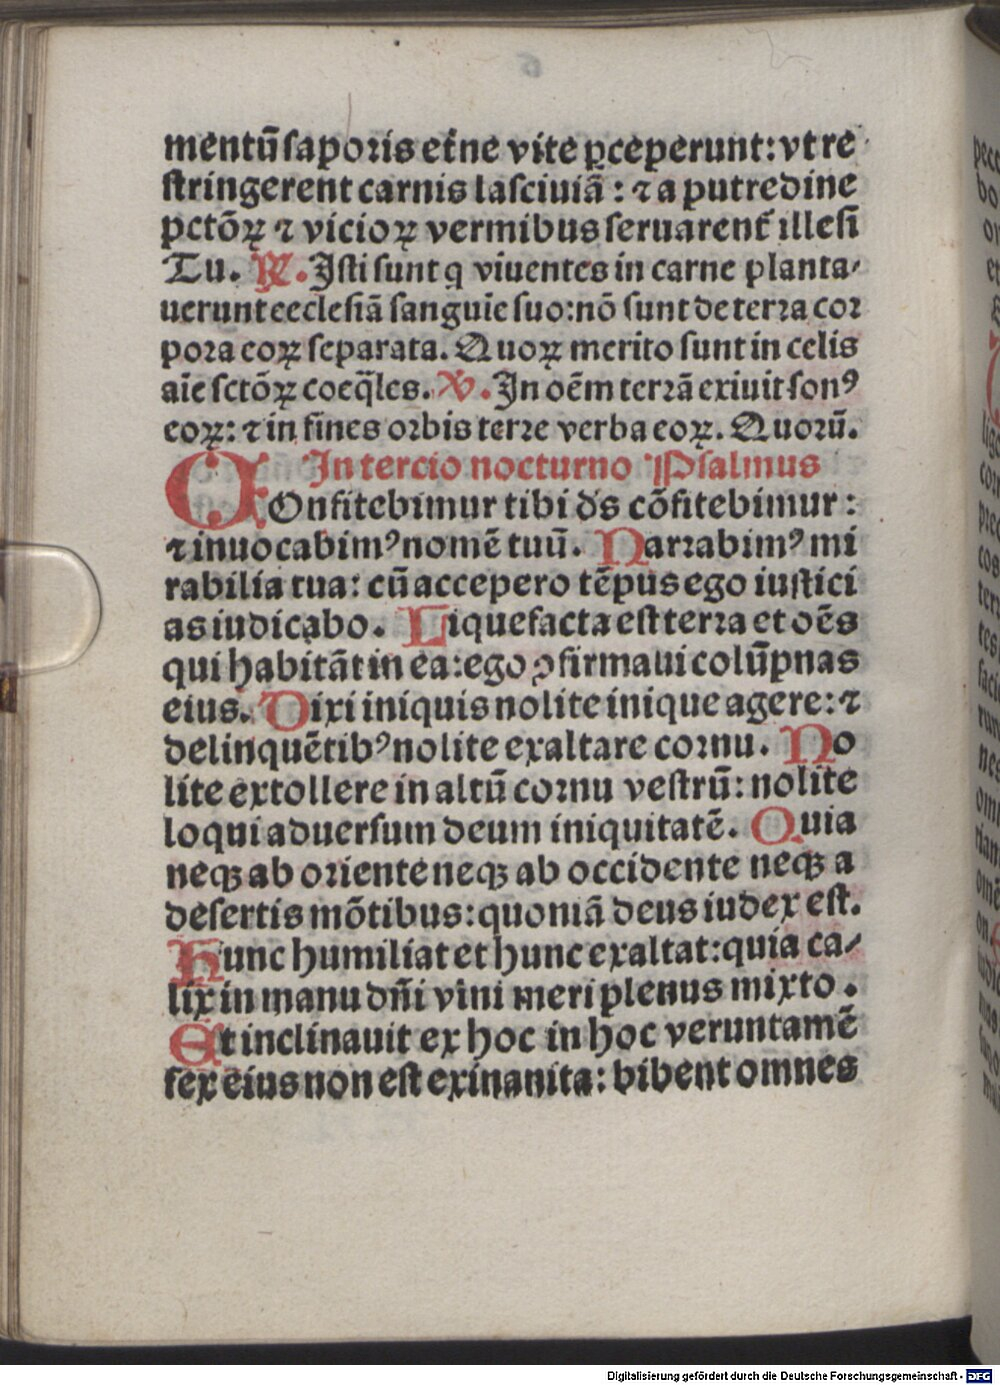 mentū ſaporis et̄ne vite ꝑceperunt: vt re
ſtringerent carnis laſciuiā : ⁊ a putredine
pctōꝝ ⁊ vicioꝝ vermibus ſeruarent̄ illeſi
Tu. ℟. Iſti ſunt q viuentes in carne planta⸗
uerunt eccleſiā ſanguīe ſuo: nō ſunt de terra cor
pora eoꝝ ſeparata. Quoꝝ merito ſunt in celis
aīe ſctōꝝ coeq̄les. ℣. In oēm terrā exiuit ſonꝰ
eoꝝ: ⁊ in fines orbis terre verba eoꝝ. Quorū.
In tercio nocturno Pſalmus
COnfitebimur tibi ds̄ cōfitebimur :
⁊ inuocabimꝰ nomē tuū. Narrabimꝰ mi
rabilia tua: cū accepero tēpus ego iuſtici
as iudicabo. Liquefacta eſt terra et oēs
qui habitāt in ea: ego ꝯfirmaui colūpnas
eius. Dixi iniquis nolite inique agere: ⁊
delinquētibꝰ nolite exaltare cornu. No
lite extollere in altū cornu veſtrū: nolite
loqui aduerſum deum iniquitatē. Quia
neqꝫ ab oriente neqꝫ ab occidente neqꝫ a
deſertis mōtibus: quoniā deus iudex eſt.
Hunc humiliat et hunc exaltat: quia ca⸗
lix in manu dn̄i vini meri plenus mixto.
Et inclinauit ex hoc in hoc veruntamē
fex eius non eſt exinanita: bibent omnes
Digitalisierung gefördert durch die Deutsche Forschungsgemeinschaft - DFG